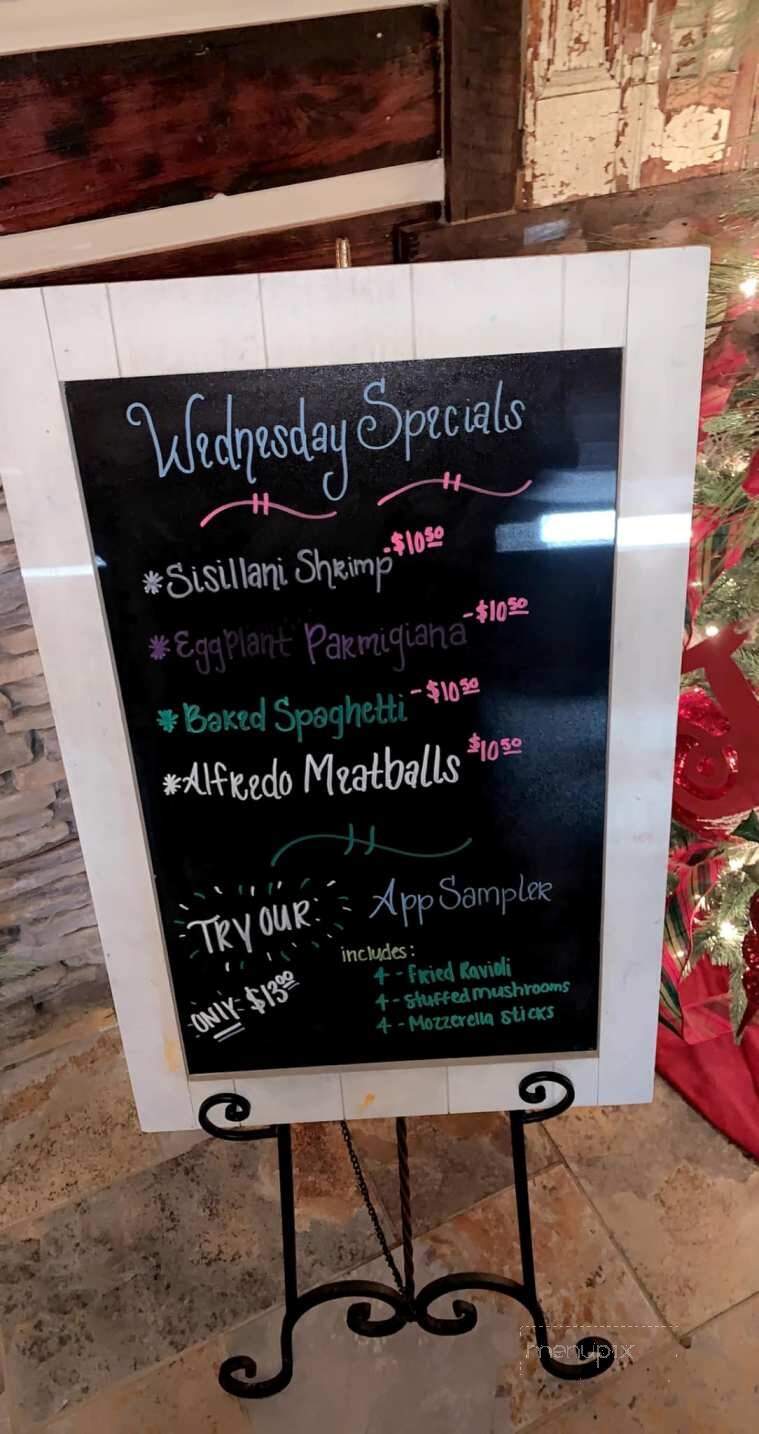 Wednesday Specials
*Sisillani Shrimp -$10.50
*Eggplant Parmigiana -$10.50
*Baked Spaghetti -$10.50
*Alfredo Meatballs $10.50
TRY OUR App Sampler
includes:
4 - Fried Ravioli
4 - Stuffed mushrooms
4 - Mozzerella sticks
ONLY $13.00
menupix